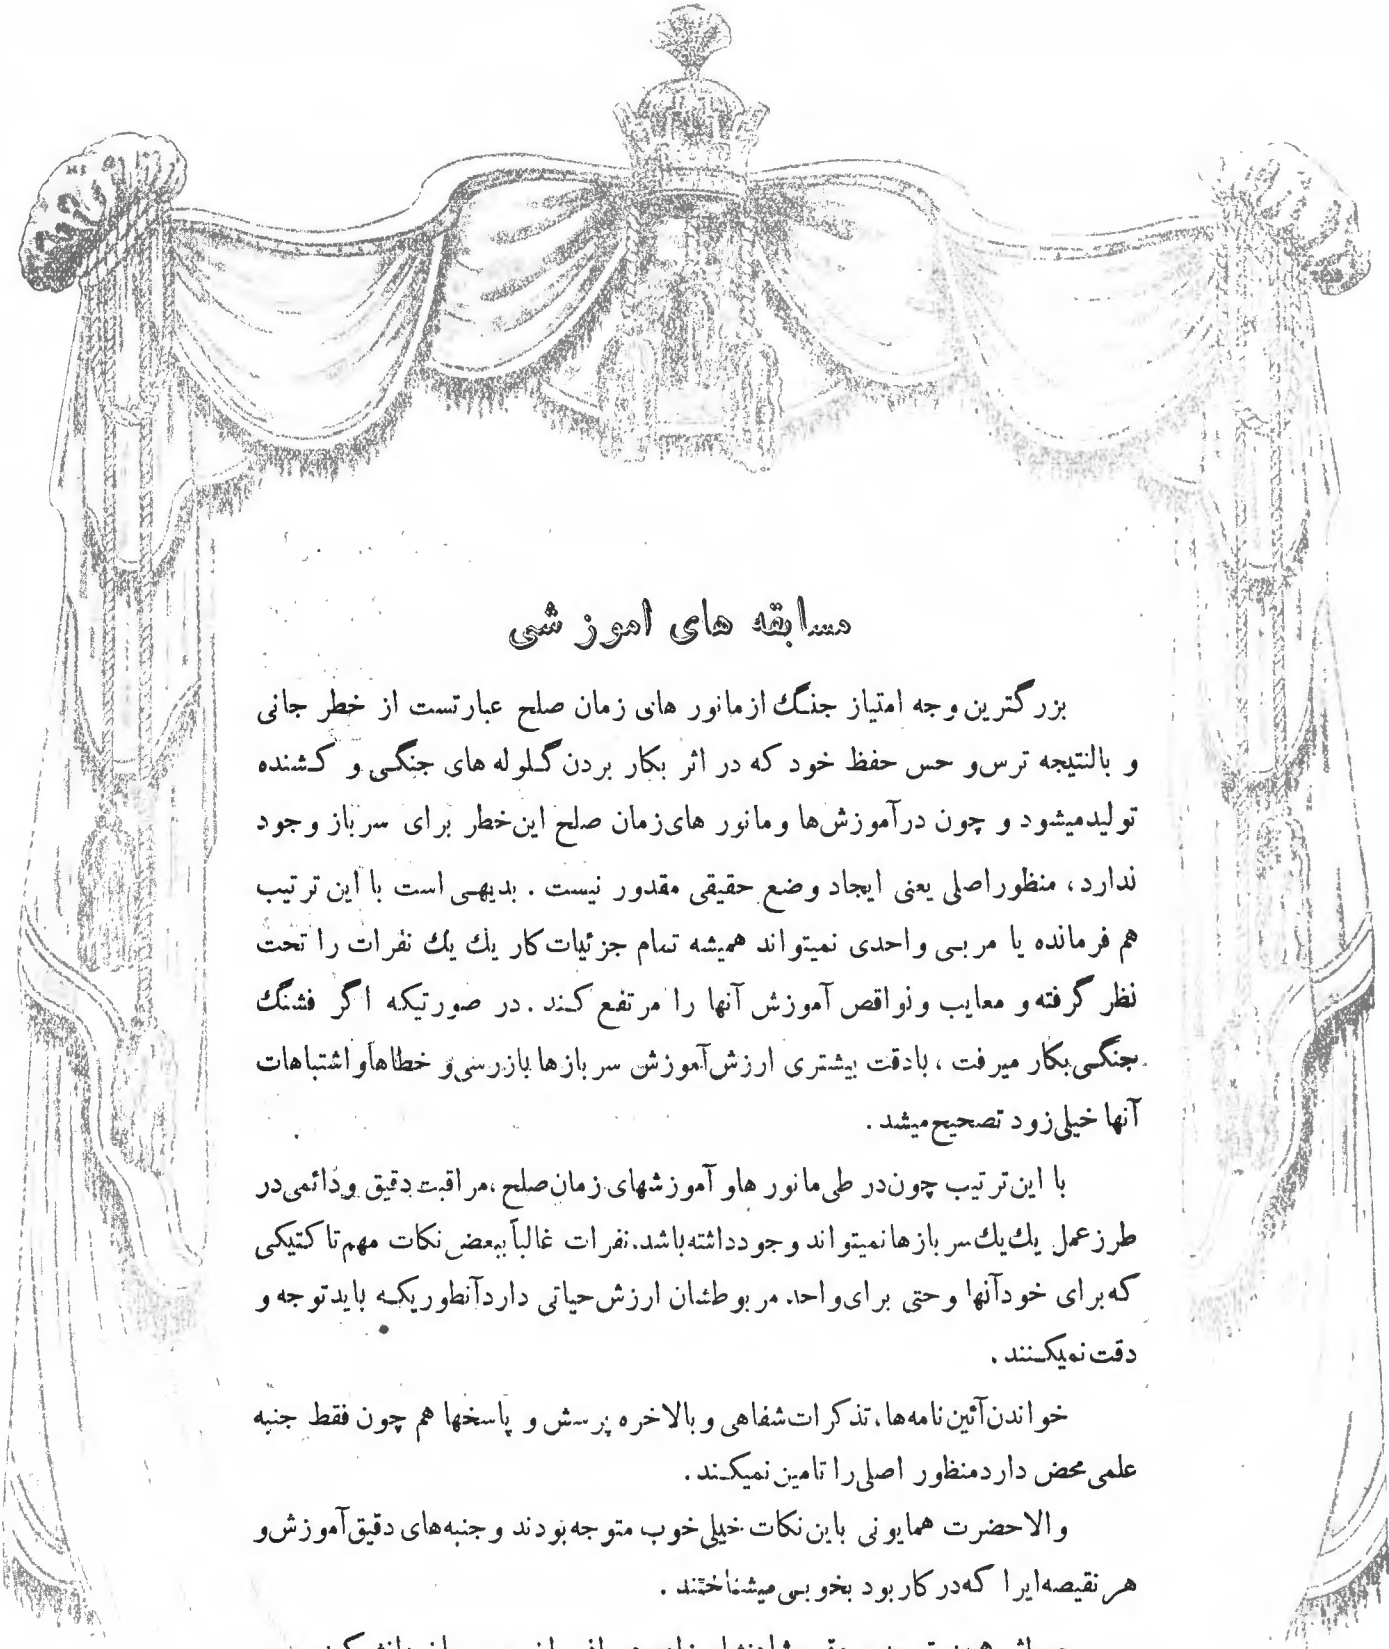 مسابقه های اموزشی
بزرگترین وجه امتیاز جنگ ازمانور های زمان صلح عبارتست از خطر جانی
و بالنتیجه ترس‌و حس حفظ خود که در اثر بکار بردن گلوله های جنگی و کشنده
تولیدمیشود و چون درآموزش‌ها ومانور های‌زمان صلح این‌خطر برای سرباز وجود
ندارد، منظوراصلی یعنی ایجاد وضع حقیقی مقدور نیست . بدیهی است با این ترتیب
هم فرمانده یا مربی واحدی نمیتواند همیشه تمام جزئیات‌کار یك یك نفرات را تحت
نظر گرفته و معایب ونواقص آموزش آنها را مرتفع کند . در صورتیکه اگر فشنگ
جنگی‌بکار میرفت ، بادقت بیشتری ارزش‌آموزش سربازها بازرسی‌و خطاهاواشتباهات
آنها خیلی‌زود تصحیح‌میشد .
با این‌ترتیب چون‌در طی‌مانور هاو آموزشهای زمان‌صلح ،مراقبت دقیق ودائمی‌در
طرزعمل یك‌یك‌سربازهانمیتواند وجودداشته‌باشد.نفرات غالباً ببعضی نکات مهم‌تاکتیکی
که‌برای خودآنها وحتی برای‌واحد مربوطشان ارزش‌حیاتی داردآنطوریکه بایدتوجه و
دقت‌نمیکنند .
خواندن‌آئین‌نامه‌ها، تذکرات‌شفاهی وبالاخره پرسش و پاسخها هم چون فقط جنبه
علمی‌محض داردمنظور اصلی‌را تامین‌نمیکند .
والاحضرت همایونی باین‌نکات خیلی‌خوب متوجه‌بودند وجنبه‌های دقیق‌آموزش‌و
هرنقیصه‌ایرا که‌درکاربود بخوبی‌میشناختند .